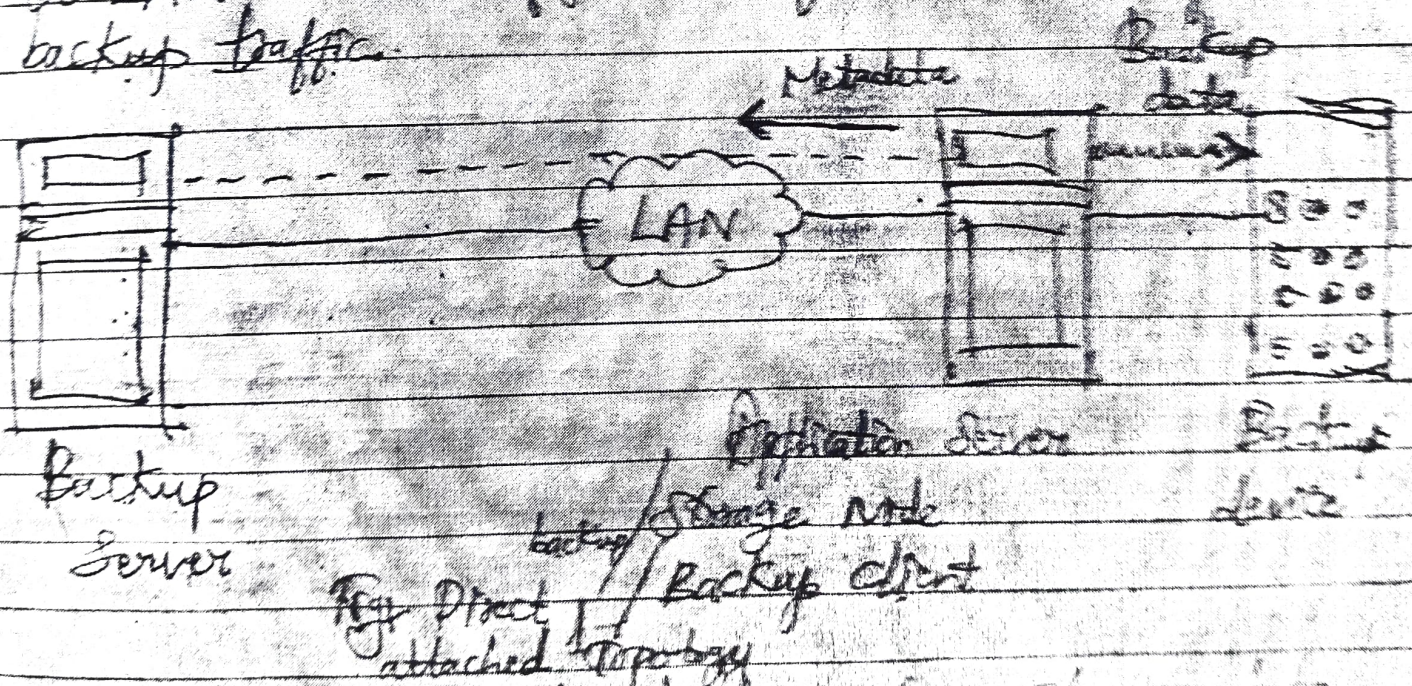 backup traffic.
Metadata
Backup
data
LAN
Backup
Server
Application Server
Storage Node
Backup Client
Backup
device
Fig: Direct backup
attached Topology